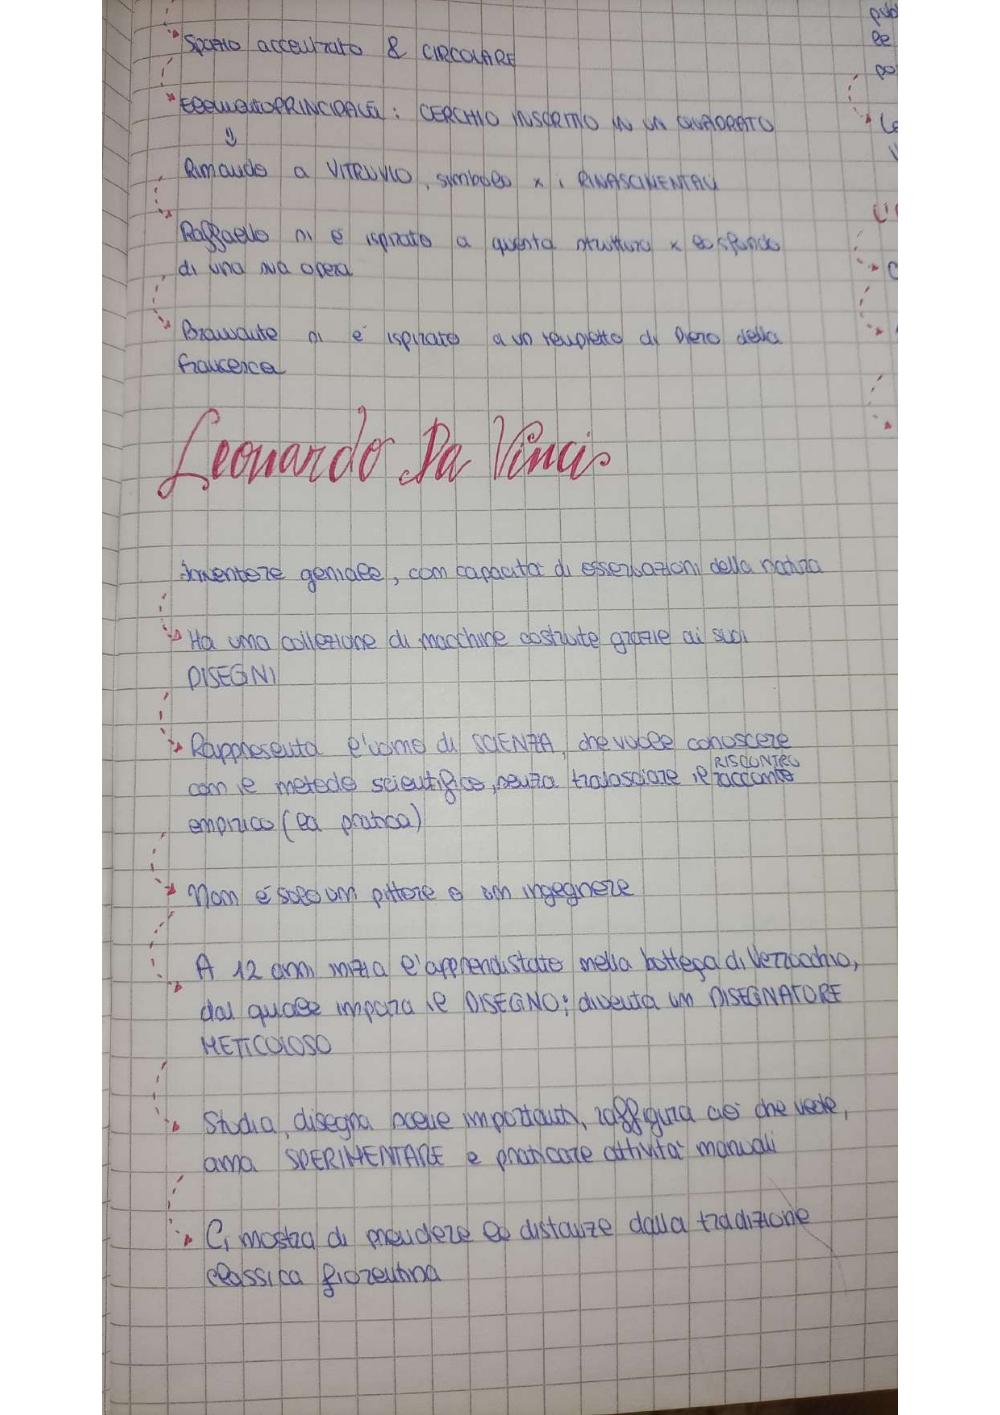 Spazio accentrato & CIRCOLARE
Elemento PRINCIPALE: CERCHIO INSCRITTO IN UN QUADRATO
Rimando a VITRUVIO, simbolo x i RINASCIMENTALI
Raffaello si è ispirato a questa struttura x lo sfondo
di una sua opera
Bramante si è ispirato a un tempietto di Piero della
Francesca
Leonardo Da Vinci
Inventore geniale, con capacità di osservazioni della natura
Ha una collezione di macchine costruite grazie ai suoi
DISEGNI
Rappresenta l'uomo di SCIENZA, che vuole conoscere
RISCONTRO
con il metodo scientifico, senza tralasciare il racconto
empirico (la pratica)
Non è solo un pittore o un ingegnere
A 12 anni inizia l'apprendistato nella bottega di Verrocchio,
dal quale impara il DISEGNO; diventa un DISEGNATORE
METICOLOSO
Studia, disegna importanti, raffigura ciò che vede,
ama SPERIMENTARE e praticare attività manuali
Ci mostra di prendere le distanze dalla tradizione
classica fiorentina